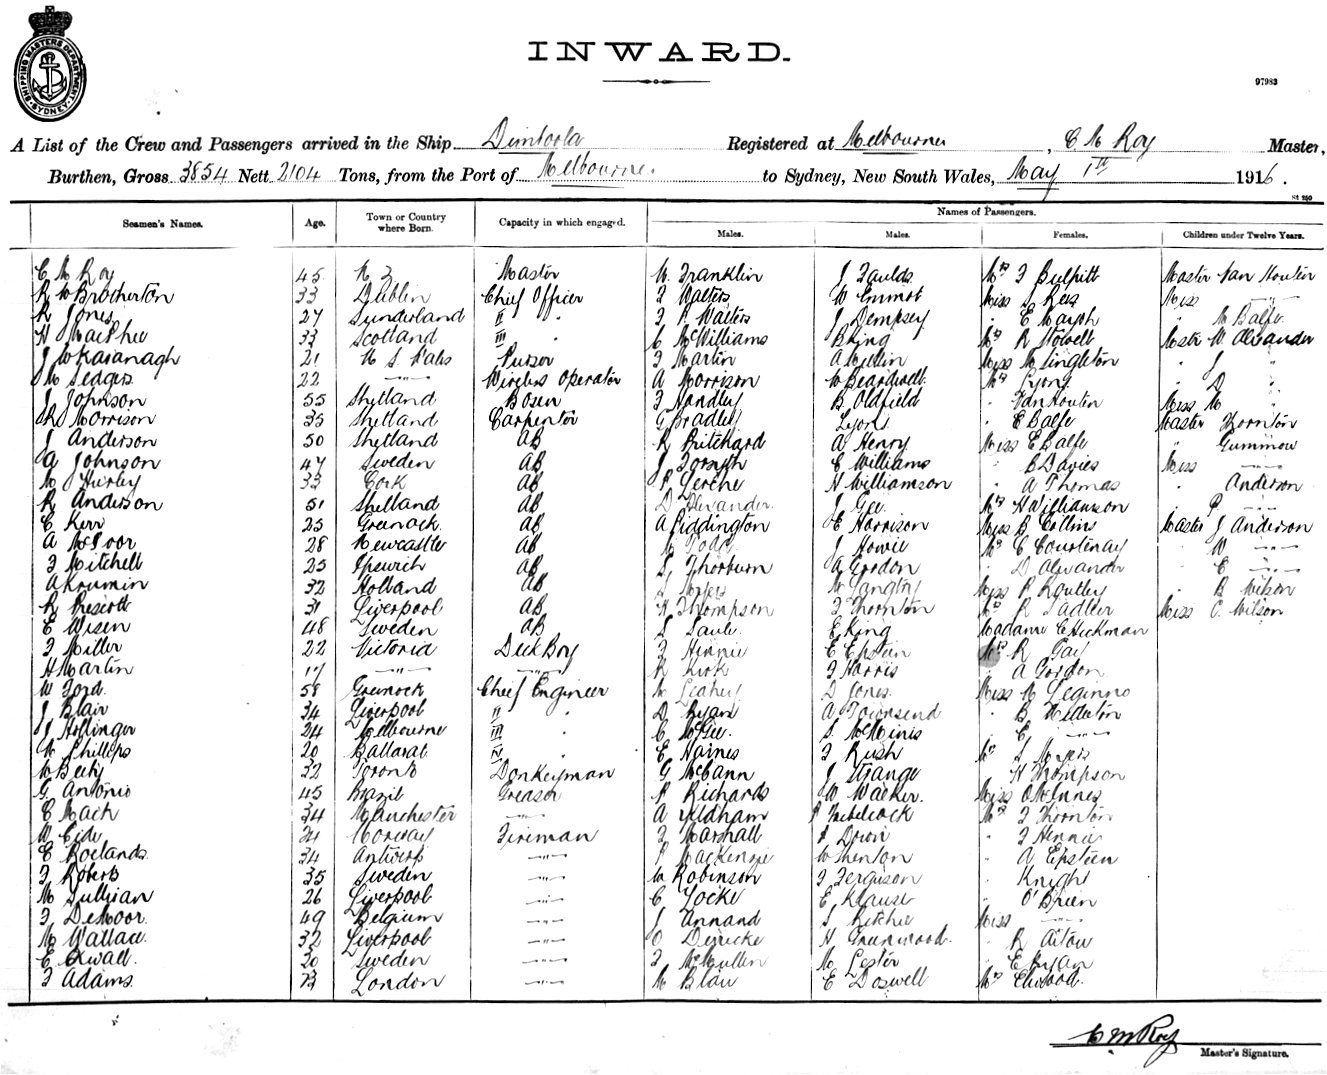 SHIPPING MASTERS DEPARTMENT
SYDNEY
INWARD.
97983
A List of the Crew and Passengers arrived in the Ship Dimboola Registered at Melbourne, C M Roy Master,
Burthen, Gross 3854 Nett 2104 Tons, from the Port of Melbourne. to Sydney, New South Wales, May 1st 1916.
St 250
Seamen's Names. Age. Town or Country where Born. Capacity in which engaged. Names of Passengers.
Males. Males. Females. Children under Twelve Years.
C M Roy 45 N Z Master W Franklin J Faulds Mrs F Bulpitt Master Van Houten
R W Brotherton 33 Dublin Chief Officer F Walters W Emmot Miss L Rees Miss -"-
R Jones 27 Sunderland II " F R Walters J Dempsey " E Marsh " M Balfe
H MacPhee 33 Scotland III " C McWilliams B King Mrs R Stowell Mastr W Alexander
J W Kavanagh 21 N S Wales Purser F Martin A Mellin Miss M Singleton " J "
M Sedgers 22 -"- Wireless Operator A Morrison W Beardwell Mrs Lyons " D "
J Johnson 55 Shetland Bosun F Handley B Oldfield " Van Houten Miss M "
R Morrison 35 Shetland Carpenter G Bradley Lyons " E Balfe Master Thornton
J Anderson 50 Shetland AB R Pritchard A Henry Miss E Balfe " Gummow
A Johnson 47 Sweden AB J Forsyth C Williams " B Davies Miss -"-
M Hurley 33 Cork AB P Lerche H Williamson " A Thomas " Anderson
R Anderson 51 Shetland AB D Alexander J Gee Mrs H Williamson " P -"-
C Kerr 25 Greenock AB A Piddington E Harrison Miss B Collins Master J Anderson
A 28 Newcastle AB M Todd J Howie Mrs C Courtenay " W -"-
F Mitchell 25 Ipswich AB S Thorburn A Gordon " D Alexander " E -"-
A Kroumin 32 Holland AB S Myers W Langtry Miss P Routley " B Wilson
R Prescott 31 Liverpool AB H Thompson F Thornton Mrs R Sadler Miss C Wilson
E Wisen 48 Sweden AB E King Madame C Hickman
F Miller 22 Victoria Deck Boy F Hinnie E Epstein Mrs R Gay
H Martin 17 -"- -"- R Kirk F Harris " A Gordon
W Ford 58 Greenock Chief Engineer M Leahey D Jones Miss M
J Blair 34 Liverpool II " D Ryan A Townsend " B
J Hollinger 24 Melbourne III " C McGee S McMinis " C -"-
W Phillips 20 Ballarat IV " E Haines F Rush Mrs S Myers
32 Toronto Donkeyman G McCann J Strange " H Thompson
G Antonio 45 Brazil Greaser P Richards W Walker Miss C McInnes
E Mack 34 Manchester -"- A Aldham Mrs F Thornton
W Eide 24 Norway Fireman F Marshall " F Hinnie
E Roelands 34 Antwerp -"- P MacKenzie W Shenton " A Epstein
F Roberts 35 Sweden -"- W Robinson F Ferguson " Knight
M Sullivan 26 Liverpool -"- C Locke E Krause " O'Brien
F DeMoor 49 Belgium -"- J Annand S Ritchie Miss -"-
M Wallace 32 Liverpool -"- O Denicke H Greenwood " R Aitow
E Ekwall 20 Sweden -"- F McMullen M Lester " E Ryan
F Adams 23 London -"- M Blair E Doswell Mrs Elwood
C M Roy
Master's Signature.